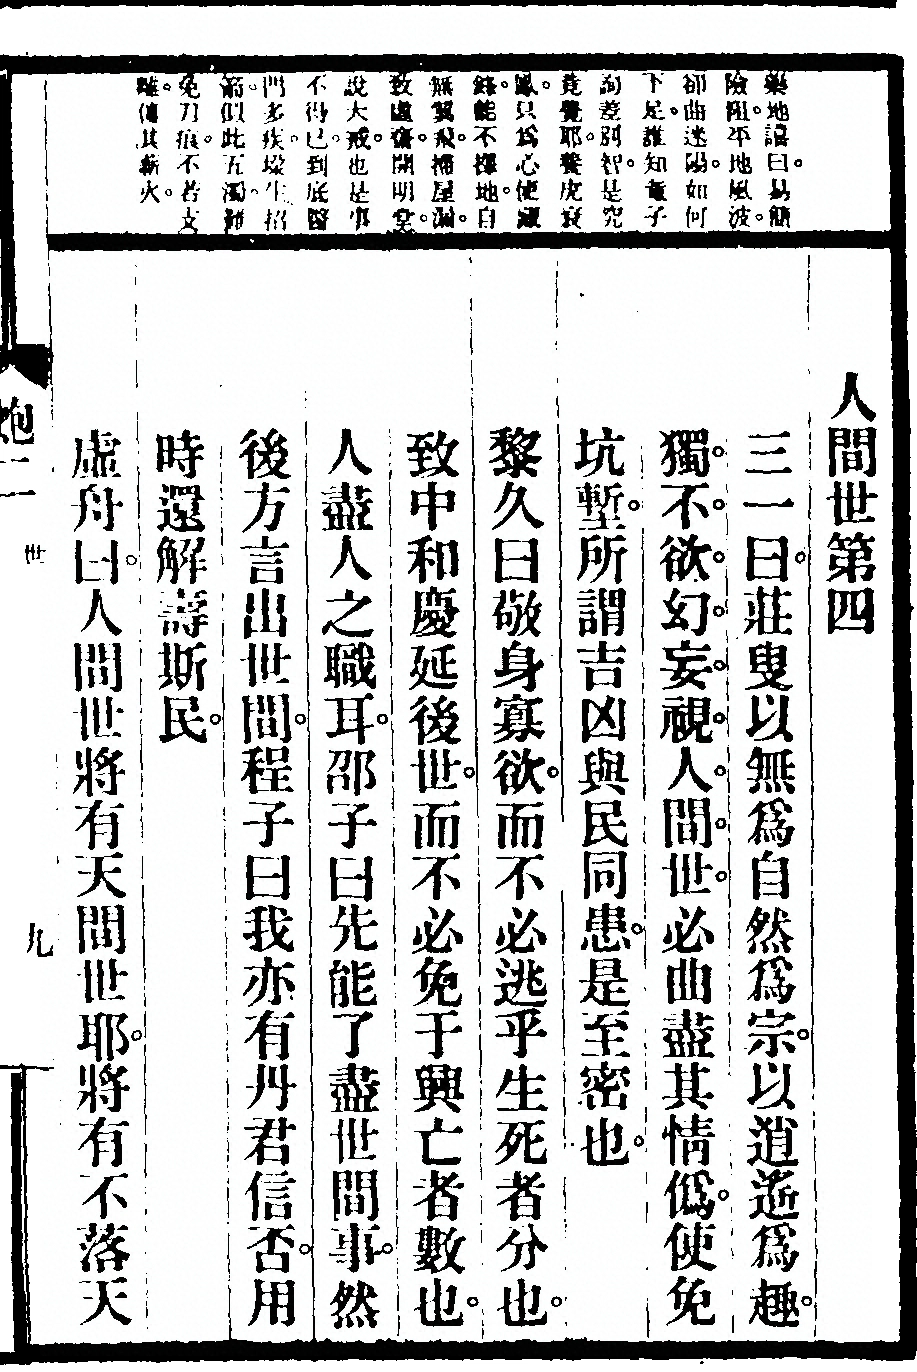 藥地曰。易簡
險阻。平地風波。
卻曲迷陽。如何
下足。誰知童子
詢差別智。是究
竟覺耶。養虎衰
鳳。只為心使。藏
鋒能不擇地。自
無翼飛。掃屋漏。
致虛齋。開明堂。
說大戒。也是事
不得已。到底醫
門多疾。生招
箭。似此五濁
免刀痕。不若文
雖傳其薪火。
人間世第四
三一曰。莊叟以無爲自然爲宗。以逍遙爲趣。
獨。不。欲。幻。妄。視。人。間。世。必曲盡其情僞。使免
坑塹。所謂吉凶與民同患。是至密也。
黎久曰敬身寡欲。而不必逃乎生死者分也。
致中和慶延後世。而不必免于興亡者數也。
人盡人之職耳。邵子曰先能了盡世間事。然
後方言出世間。程子曰我亦有丹君信否。用
時還解壽斯民。
虛舟曰。人間世將有天間世耶。將有不落天
炮二
世
九